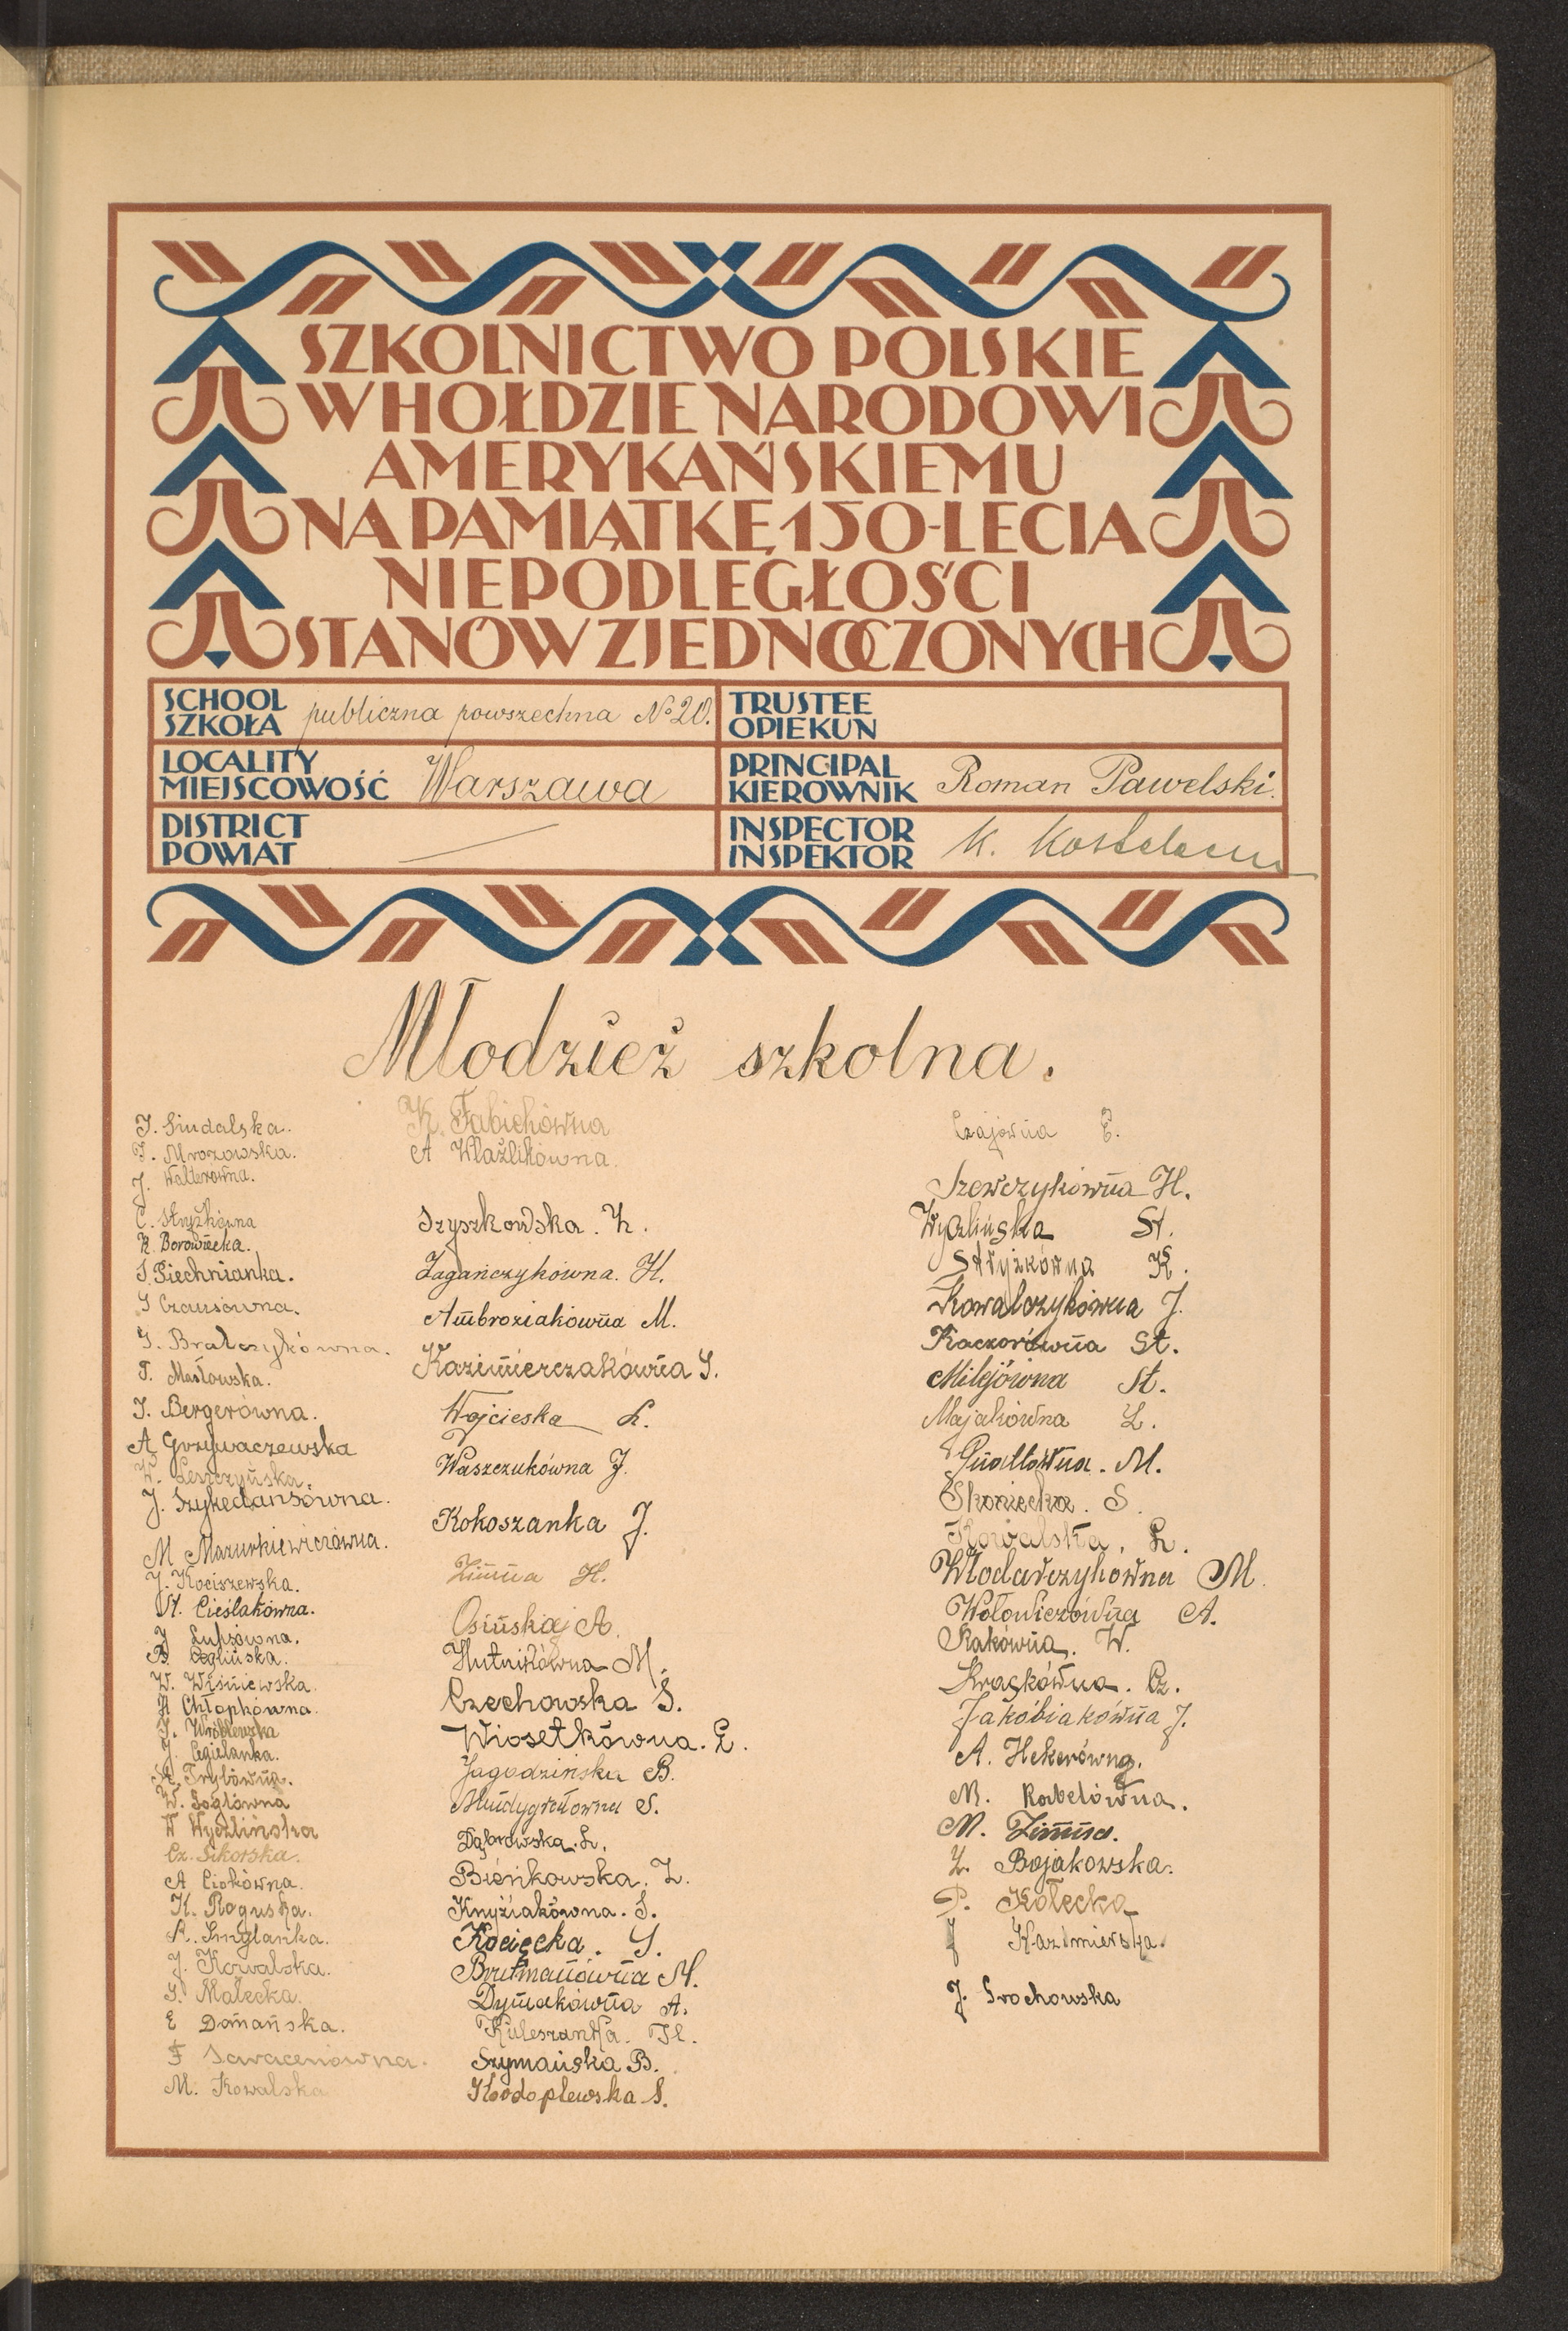 SZKOLNICTWO POLSKIE
W HOŁDZIE NARODOWI
AMERYKAŃSKIEMU
NA PAMIĄTKĘ 150-LECIA
NIEPODLEGŁOŚCI
STANÓW ZJEDNOCZONYCH
SCHOOL
SZKOŁA publiczna powszechna № 20.
TRUSTEE
OPIEKUN
LOCALITY
MIEJSCOWOŚĆ Warszawa
PRINCIPAL
KIEROWNIK Roman Pawelski.
DISTRICT
POWIAT —
INSPECTOR
INSPEKTOR K.
Młodzież szkolna.
J. Siudalska.
J. Mrozowska.
J. Walterówna.
C. Stryżkówna
R. Borowiecka.
S. Piechnianka.
S. Czausówna.
S. Bralczykówna.
T. Masłowska.
J. Bergerówna.
A Grzywaczewska
W. Leszczyńska.
J. Szykedansówna.
M Mazurkiewiczówna.
J. Kociszewska.
St. Cieślakówna.
J Lupsówna.
B.
W. Wiśniewska.
H Chłopkówna.
J. Wróblewska
J. Cegielanka.
St. Trylówna.
W. Soglówna
W Wyczlińska
Cz. Sikorska.
A Ciokówna.
K. Roguska.
R. Smglarka.
J. Kowalska.
S. Małecka.
E Domańska.
F Saracenówna.
M. Kowalska
K. Fabichówna
A Wlaźlikówna.
Szyszkowska. Z.
Zagańczykówna. H.
Ambroziakówna M.
Kazimierczakówna S.
Wojcieska L.
Waszczukówna J.
Kokoszanka J.
Zimna H.
Osińska A.
Hutnikówna M.
Czechowska S.
Wiosetkówna. E.
Jagodzińska B.
S.
Dąbrowska. L.
Bieńkowska. Z.
Knyziakówna. S.
Kocięcka. S.
Brutmanówna M.
Dymakówna A.
Kuleszanka. H.
Szymańska B.
Kłodoplewska S.
Czajówna E.
Szewczykówna H.
Wyczlińska St.
Stryżkówna K.
Kowalczykówna J.
Kaczorówna St.
Milejówna St.
Majakówna Z.
Gnattówna. M.
Skoniecka. S.
Kowalska. L.
Włodarczykówna M.
Wołowiczówna A.
Rakówna. W.
Kraskówna. Cz.
Jakóbiakówna J.
A. Hekerówna.
M. Rabelówna.
M. Zimna.
Z. Bojakowska.
P. Kołecka
J Kazimierska.
J. Grochowska